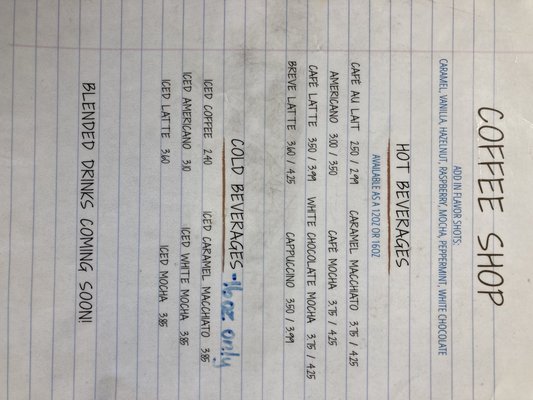 COFFEE SHOP
ADD IN FLAVOR SHOTS:
CARAMEL, VANILLA, HAZELNUT, RASPBERRY, MOCHA, PEPPERMINT, WHITE CHOCOLATE
HOT BEVERAGES
AVAILABLE AS A 12OZ OR 16OZ
CAFÉ AU LAIT 2.50 / 2.99 CARAMEL MACCHIATO 3.75 / 4.25
AMERICANO 3.00 / 3.50 CAFÉ MOCHA 3.75 / 4.25
CAFÉ LATTE 3.50 / 3.99 WHITE CHOCOLATE MOCHA 3.75 / 4.25
BREVE LATTE 3.60 / 4.25 CAPPUCCINO 3.50 / 3.99
COLD BEVERAGES - 16 oz. only
ICED COFFEE 2.40 ICED CARAMEL MACCHIATO 3.85
ICED AMERICANO 3.10 ICED WHITE MOCHA 3.85
ICED LATTE 3.60 ICED MOCHA 3.85
BLENDED DRINKS COMING SOON!